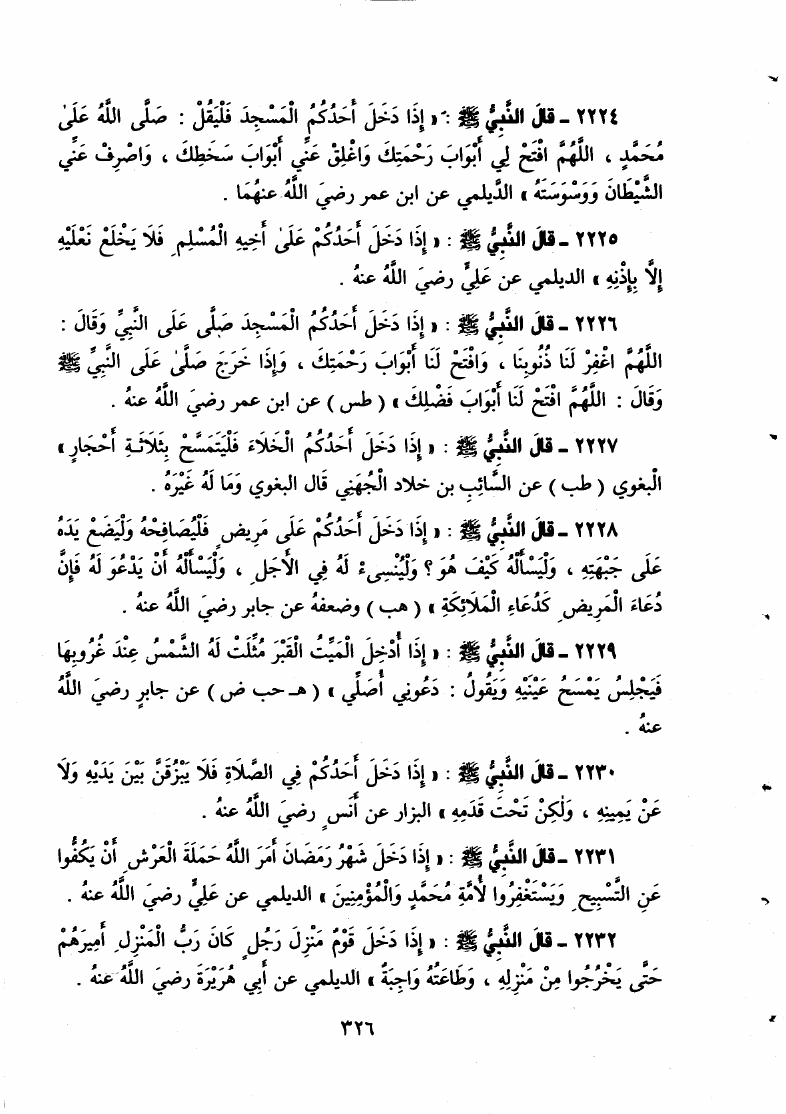 ٢٢٢٤ ـ قالَ النَّبِيُّ ﷺ : « إِذَا دَخَلَ أَحَدُكُمُ الْمَسْجِدَ فَلْيَقُلْ : صَلَّى اللَّهُ عَلَىٰ
مُحَمَّدٍ ، اللَّهُمَّ افْتَحْ لِي أَبْوَابَ رَحْمَتِكَ وَاغْلِقْ عَنِّي أَبْوَابَ سَخَطِكَ ، وَاصْرِفْ عَنِّي
الشَّيْطَانَ وَوَسْوَسَتَهُ » الدَّيلمي عن ابن عمر رضيَ اللَّهُ عنهُمَا .
٢٢٢٥ ـ قالَ النَّبِيُّ ﷺ : « إِذَا دَخَلَ أَحَدُكُمْ عَلَىٰ أَخِيهِ الْمُسْلِمِ فَلَا يَخْلَعْ نَعْلَيْهِ
إِلَّا بِإِذْنِهِ » الديلمي عن عَلِيٍّ رضيَ اللَّهُ عنهُ .
٢٢٢٦ ـ قالَ النَّبِيُّ ﷺ : « إِذَا دَخَلَ أَحَدُكُمُ الْمَسْجِدَ صَلَّى عَلَى النَّبِيِّ وَقَالَ :
اللَّهُمَّ اغْفِرْ لَنَا ذُنُوبِنَا ، وَافْتَحْ لَنَا أَبْوَابَ رَحْمَتِكَ ، وَإِذَا خَرَجَ صَلَّىٰ عَلَى النَّبِيِّ ﷺ
وَقَالَ : اللَّهُمَّ افْتَحْ لَنَا أَبْوَابَ فَضْلِكَ » ( طس ) عن ابن عمر رضيَ اللَّهُ عنهُ .
٢٢٢٧ ـ قالَ النَّبِيُّ ﷺ : « إِذَا دَخَلَ أَحَدُكُمُ الْخَلَاءَ فَلْيَتَمَسَّحْ بِثَلَاثَةِ أَحْجَارٍ »
الْبغوي ( طب ) عن السَّائِبِ بن خلاد الْجُهَنِي قال البغوي وَمَا لَهُ غَيْرَهُ .
٢٢٢٨ ـ قالَ النَّبِيُّ ﷺ : « إِذَا دَخَلَ أَحَدُكُمْ عَلَى مَرِيضٍ فَلْيُصَافِحْهُ وَلْيَضَعْ يَدَهُ
عَلَى جَبْهَتِهِ ، وَلْيَسْأَلْهُ كَيْفَ هُوَ ؟ وَلْيُنْسِىءْ لَهُ فِي الأَجَلِ ، وَلْيَسْأَلْهُ أَنْ يَدْعُوَ لَهُ فَإِنَّ
دُعَاءَ الْمَرِيضِ كَدُعَاءِ الْمَلَائِكَةِ » ( هب ) وضعفهُ عن جابر رضيَ اللَّهُ عنهُ .
٢٢٢٩ ـ قالَ النَّبِيُّ ﷺ : « إِذَا أُدْخِلَ الْمَيِّتُ الْقَبْرَ مُثِّلَتْ لَهُ الشَّمْسُ عِنْدَ غُرُوبِهَا
فَيَجْلِسُ يَمْسَحُ عَيْنَيْهِ وَيَقُولُ : دَعُونِي أُصَلِّي » ( هـ حب ض ) عن جابرٍ رضيَ اللَّهُ
عنهُ .
٢٢٣٠ ـ قالَ النَّبِيُّ ﷺ : « إِذَا دَخَلَ أَحَدُكُمْ فِي الصَّلَاةِ فَلَا يَبْزُقَنَّ بَيْنَ يَدَيْهِ وَلَا
عَنْ يَمِينِهِ ، وَلَٰكِنْ تَحْتَ قَدَمِهِ » البزار عن أنَسٍ رضيَ اللَّهُ عنهُ .
٢٢٣١ ـ قالَ النَّبِيُّ ﷺ : « إِذَا دَخَلَ شَهْرُ رَمَضَانَ أَمَرَ اللَّهُ حَمَلَةَ الْعَرْشِ أَنْ يَكُفُّوا
عَنِ التَّسْبِيحِ وَيَسْتَغْفِرُوا لأُمَّةِ مُحَمَّدٍ وَالْمُؤْمِنِينَ » الديلمي عن عَلِيٍّ رضيَ اللَّهُ عنهُ .
٢٢٣٢ ـ قالَ النَّبِيُّ ﷺ : « إِذَا دَخَلَ قَوْمٌ مَنْزِلَ رَجُلٍ كَانَ رَبُّ الْمَنْزِلِ أَمِيرَهُمْ
حَتَّى يَخْرُجُوا مِنْ مَنْزِلِهِ ، وَطَاعَتُهُ وَاجِبَةٌ » الديلمي عن أبي هُرَيْرَةَ رضيَ اللَّهُ عنهُ .
٣٢٦